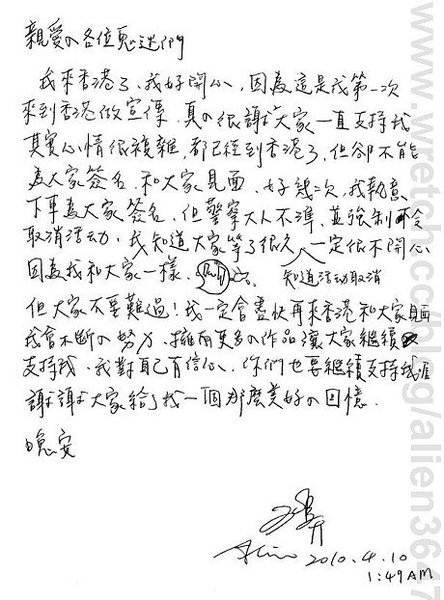 親愛的各位鬼迷們
我來香港了、我好開心、因為這是我第一次
來到香港做宣傳、真的很謝謝大家一直支持我
其實心情很複雜、都已經到香港了、但卻不能
為大家簽名、和大家見面、好幾次、我執意
下車為大家簽名、但警察大人不準、並強制下令
取消活動、我知道大家等了很久、一定很不開心
因為我和大家一樣、 知道活動取消
但大家不要難過!我一定會盡快再來香港和大家見面
我會不斷的努力、擁有更多的作品讓大家繼續
支持我、我對自己有信心、你們也要繼續支持我喔
謝謝大家給了我一個那麼美好的回憶.
晚安
Alien 2010.4.10
1:49AM
www.wretch.cc/blog/alien3647